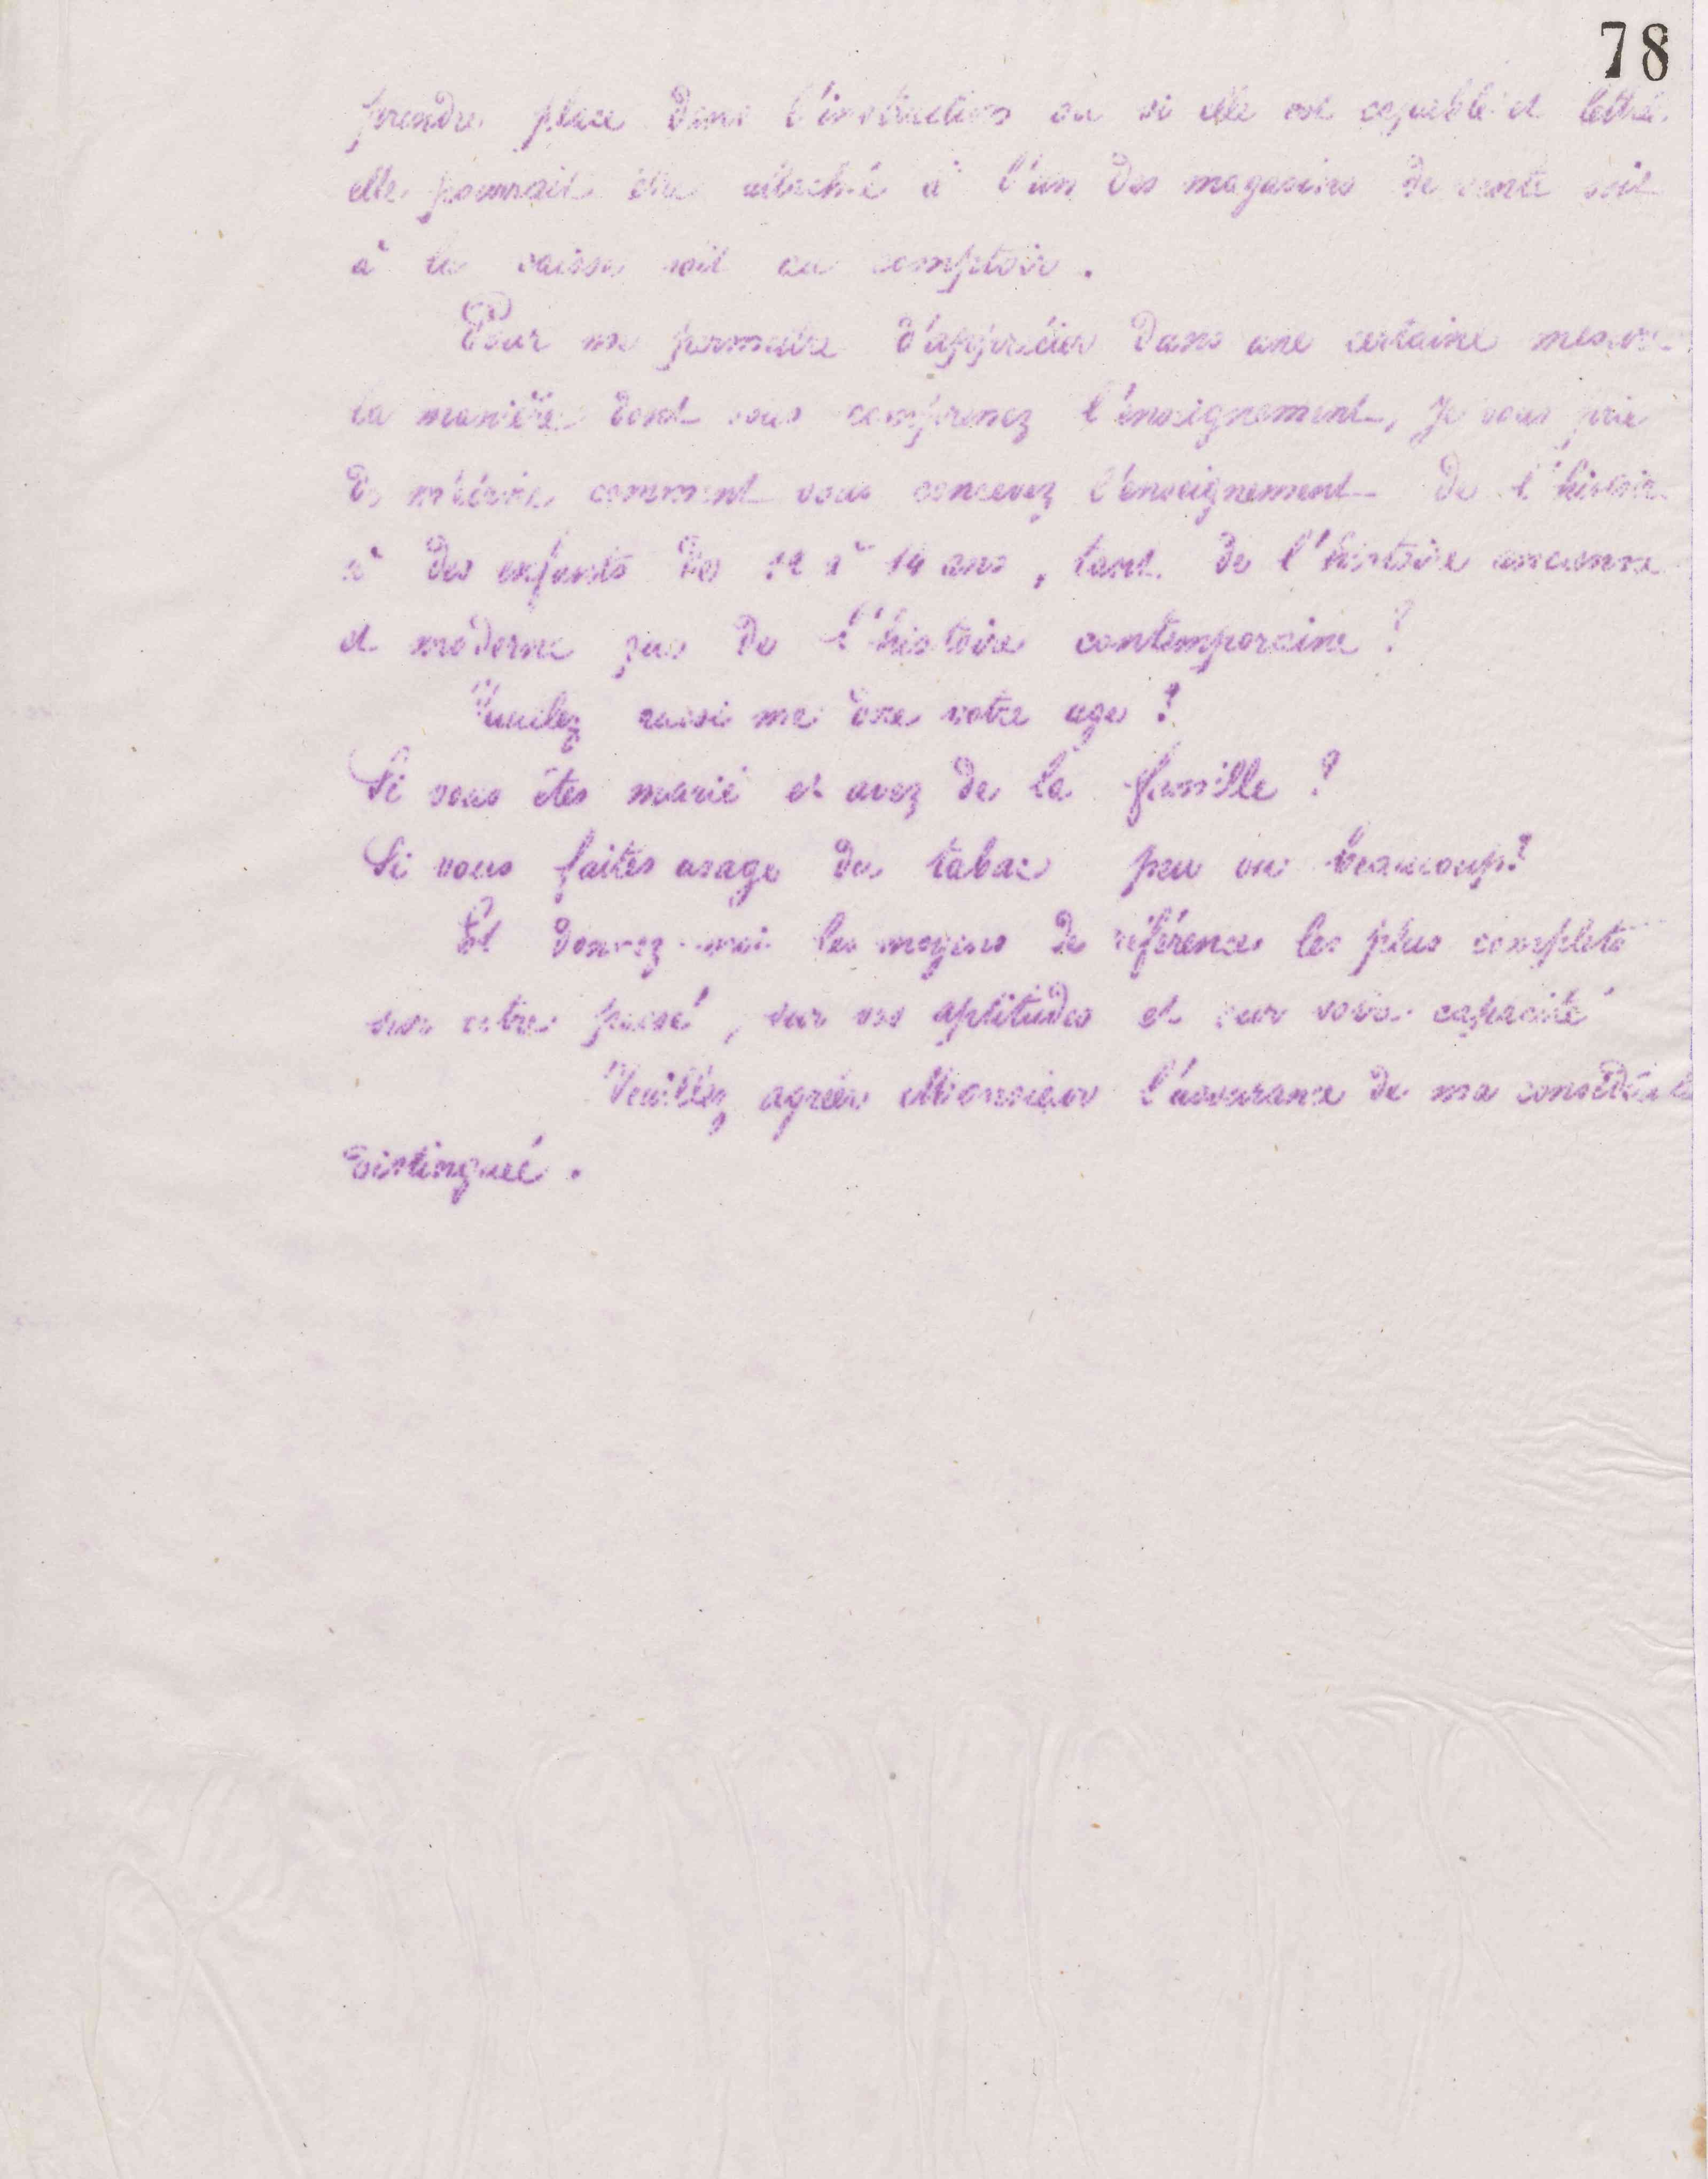 78
prendre place dans l'instruction ou si elle est capable et lettré
elle pourrait être attaché à l'un des magasins de vente soit
à la caisse soit au comptoir.
Pour me permettre d'apprécier dans une certaine mesure
la manière dont vous comprenez l'enseignement, je vous prie
de m'écrire comment vous concevez l'enseignement de l'histoire
à des enfants de 12 à 14 ans, tant de l'histoire ancienne
et moderne que de l'histoire contemporaine?
Veuillez aussi me dire votre age?
Si vous êtes marié et avez de la famille?
Si vous faites usage du tabac peu ou beaucoup?
Et donnez-moi les moyens de référence les plus complets
sur votre passé, sur vos aptitudes et sur votre capacité
Veuillez agréer Monsieur l'assurance de ma considération
distinguée.